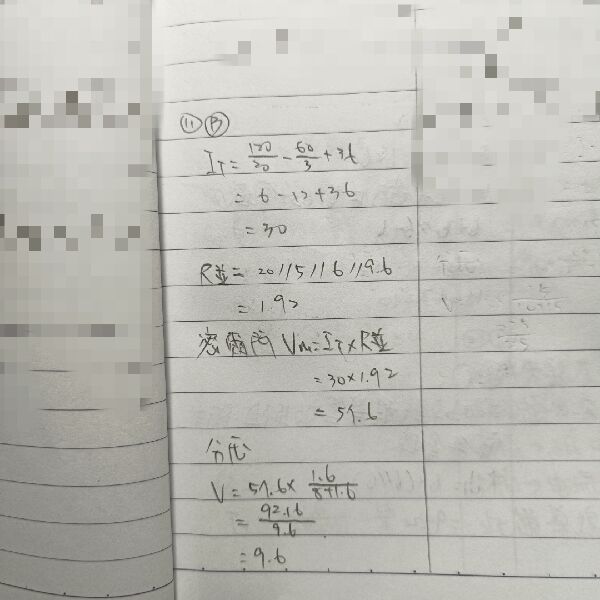 ⑪ Ⓑ
I_T = 120/20 - 60/3 + 36
= 6 - 12 + 36
= 30
R並 = 20//5//6//9.6
= 1.92
密爾門 Vm = I_T × R並
= 30×1.92
= 57.6
分壓
V = 57.6 × 1.6/8+1.6
= 92.16/9.6
= 9.6